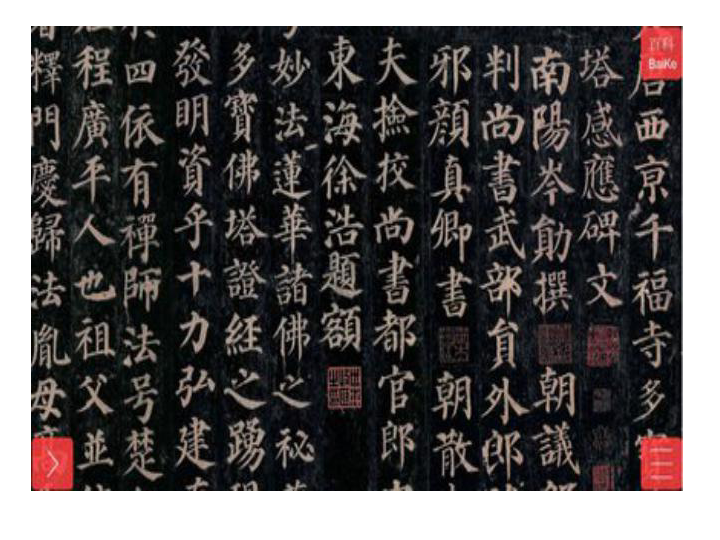 唐西京千福寺多
塔感應碑文
南陽岑勛撰 朝議
判尚書武部員外郎
邪顏真卿書 朝散
夫撿校尚書都官郎
東海徐浩題額
妙法蓮華諸佛之祕
多寶佛塔證經之踴
發明資乎十力弘建
四依有禪師法号楚
程廣平人也祖父並
釋門慶歸法胤母
百科
BaiKe